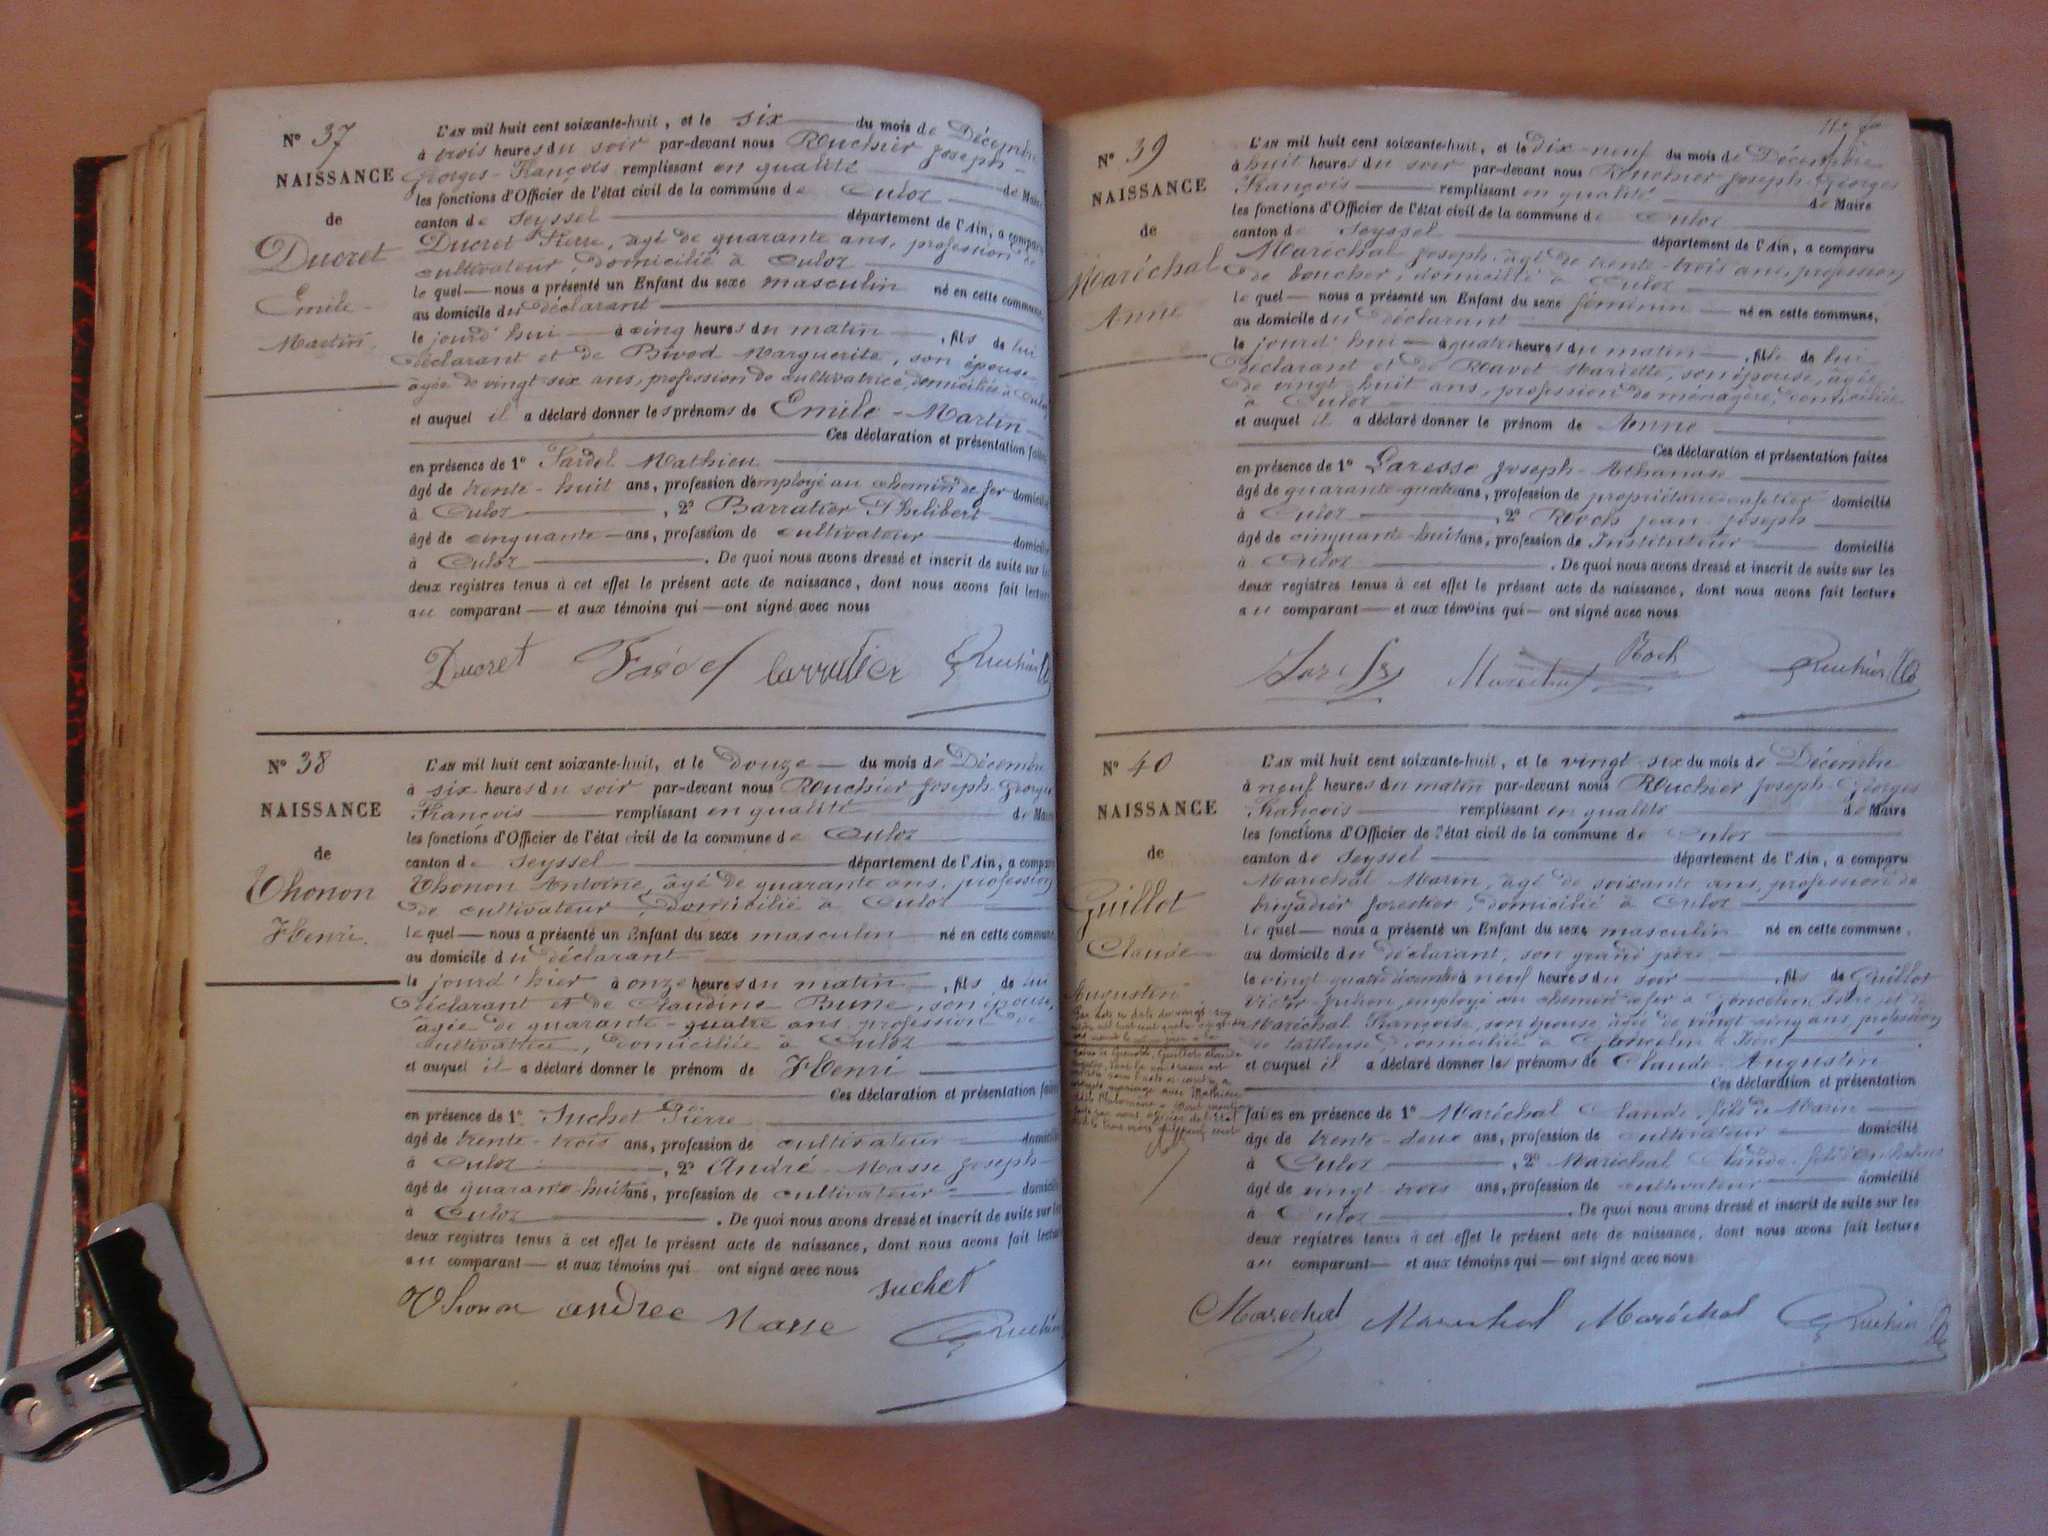 N° 37
NAISSANCE
de
Ducret
Emile-
Martin.
L'AN mil huit cent soixante-huit, et le six du mois de Décembre
à trois heures du soir par-devant nous Ruchier Joseph-
Georges-François remplissant en qualité de Maire
les fonctions d'Officier de l'état civil de la commune de Culoz
canton de Seyssel département de l'Ain, a comparu
Ducret Pierre, âgé de quarante ans, profession de
cultivateur, domicilié à Culoz
le quel nous a présenté un Enfant du sexe masculin né en cette commune,
au domicile du déclarant
le jourd'hui à cinq heures du matin, fils de lui
déclarant et de Marguerite, son épouse,
âgée de vingt six ans, profession de cultivatrice, domiciliée à Culoz
et auquel il a déclaré donner les prénoms de Emile-Martin
Ces déclaration et présentation faites
en présence de 1° Fardel Mathieu
âgé de trente-huit ans, profession d'employé au chemin de fer domicilié
à Culoz, 2° Barratier Philibert
âgé de cinquante ans, profession de cultivateur domicilié
à Culoz. De quoi nous avons dressé et inscrit de suite sur les
deux registres tenus à cet effet le présent acte de naissance, dont nous avons fait lecture
au comparant et aux témoins qui ont signé avec nous
Ducret Fardel barratier Ruchier
N° 38
NAISSANCE
de
Thonon
Henri.
L'AN mil huit cent soixante-huit, et le douze du mois de Décembre
à six heures du soir par-devant nous Ruchier Joseph-Georges
François remplissant en qualité de Maire
les fonctions d'Officier de l'état civil de la commune de Culoz
canton de Seyssel département de l'Ain, a comparu
Thonon Antoine, âgé de quarante ans, profession
de cultivateur, domicilié à Culoz
le quel nous a présenté un Enfant du sexe masculin né en cette commune,
au domicile du déclarant
le jourd'hier à onze heures du matin, fils de lui
déclarant et de Claudine Bune, son épouse,
âgée de quarante-quatre ans, profession de
cultivatrice, domiciliée à Culoz
et auquel il a déclaré donner le prénom de Henri
Ces déclaration et présentation faites
en présence de 1° Suchet Pierre
âgé de trente-trois ans, profession de cultivateur domicilié
à Culoz, 2° André-Masse Joseph-
âgé de quarante-huit ans, profession de cultivateur domicilié
à Culoz. De quoi nous avons dressé et inscrit de suite sur les
deux registres tenus à cet effet le présent acte de naissance, dont nous avons fait lecture
au comparant et aux témoins qui ont signé avec nous
Suchet
Thonon andree Masse Ruchier
N° 39
NAISSANCE
de
Maréchal
Anne
L'AN mil huit cent soixante-huit, et le dix-neuf du mois de Décembre
à huit heures du soir par-devant nous Ruchier Joseph-Georges
François remplissant en qualité de Maire
les fonctions d'Officier de l'état civil de la commune de Culoz
canton de Seyssel département de l'Ain, a comparu
Maréchal Joseph, âgé de trente-trois ans, profession
de boucher, domicilié à Culoz
le quel nous a présenté un Enfant du sexe féminin né en cette commune,
au domicile du déclarant
le jourd'hui à quatre heures du matin, fille de lui
déclarant et de Ravet Mariette, son épouse, âgée
de vingt-huit ans, profession de ménagère, domiciliée
à Culoz
et auquel il a déclaré donner le prénom de Anne
Ces déclaration et présentation faites
en présence de 1° Joseph-Athanase
âgé de quarante-quatre ans, profession de propriétaire cafetier domicilié
à Culoz, 2° Roch jean-joseph
âgé de cinquante-huit ans, profession de Instituteur domicilié
à Culoz. De quoi nous avons dressé et inscrit de suite sur les
deux registres tenus à cet effet le présent acte de naissance, dont nous avons fait lecture
au comparant et aux témoins qui ont signé avec nous
Marechal Roch Ruchier
N° 40
NAISSANCE
de
Guillot
Claude-
Augustin
L'AN mil huit cent soixante-huit, et le vingt-six du mois de Décembre
à neuf heures du matin par-devant nous Ruchier Joseph-Georges
François remplissant en qualité de Maire
les fonctions d'Officier de l'état civil de la commune de Culoz
canton de Seyssel département de l'Ain, a comparu
Maréchal Marin, âgé de soixante ans, profession de
brigadier forestier, domicilié à Culoz
le quel nous a présenté un Enfant du sexe masculin né en cette commune,
au domicile du déclarant, son grand père
le vingt quatre décembre à neuf heures du soir, fils de Guillot
Victor-Julien, employé au chemin de fer à Goncelin, Isère et de
Maréchal Françoise, son épouse, âgée de vingt cinq ans, profession
de tailleuse, domiciliée à Goncelin (Isère)
et auquel il a déclaré donner les prénoms de Claude-Augustin
Ces déclaration et présentation
faites en présence de 1° Maréchal Claude, fils de Marin
âgé de trente-deux ans, profession de cultivateur domicilié
à Culoz, 2° Maréchal Claude, fils
âgé de vingt-trois ans, profession de cultivateur domicilié
à Culoz. De quoi nous avons dressé et inscrit de suite sur les
deux registres tenus à cet effet le présent acte de naissance, dont nous avons fait lecture
au comparant et aux témoins qui ont signé avec nous
Marechal Marechal Maréchal Ruchier